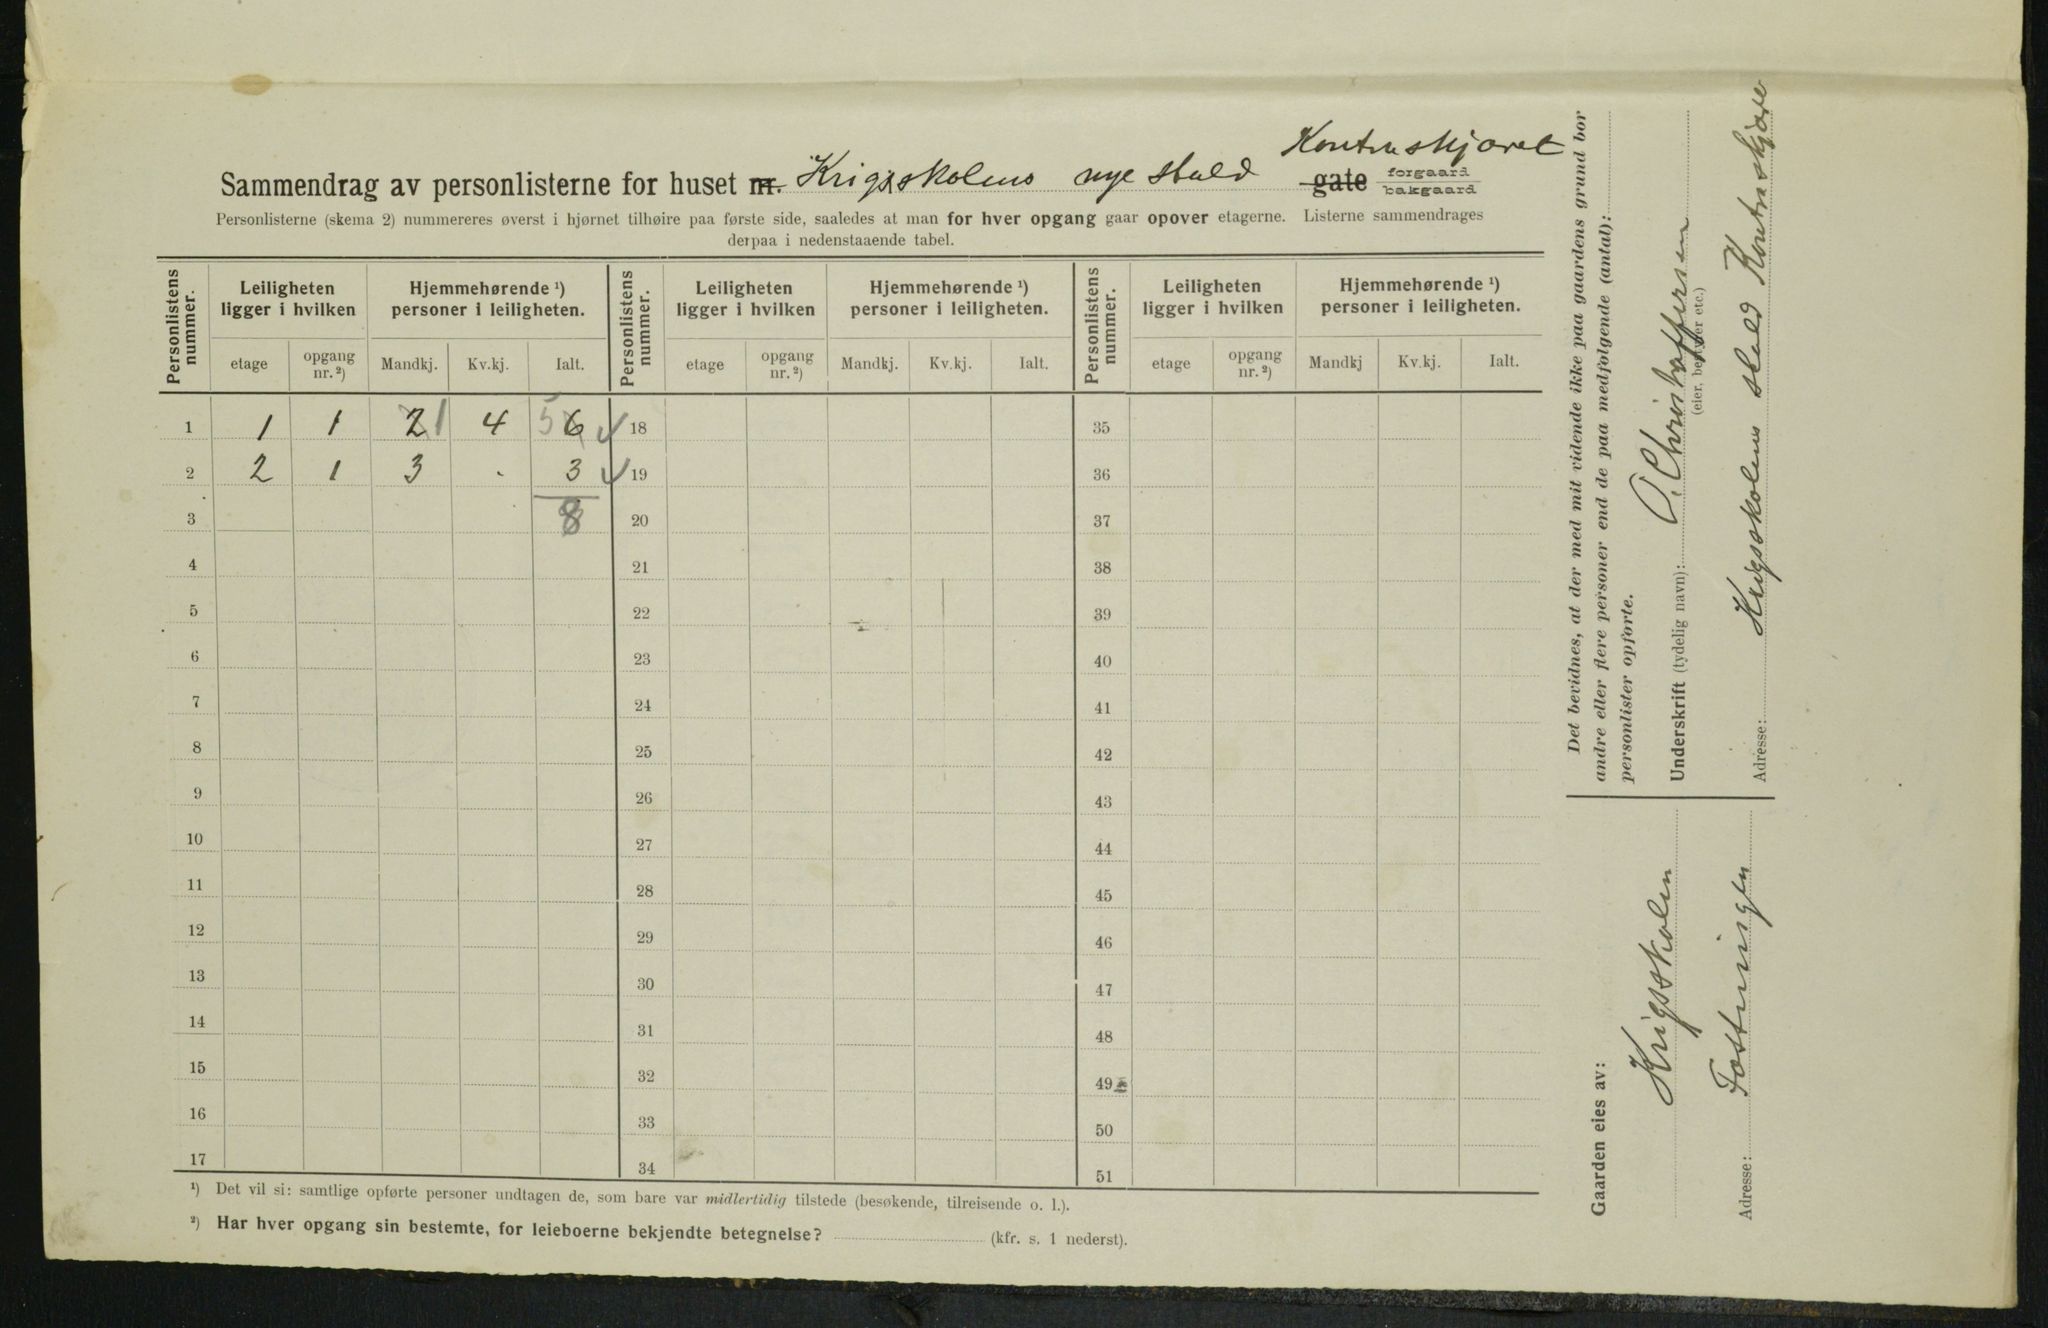 Kontraskjæret
Sammendrag av personlisterne for huset nr. Krigsskolens nye stald gate forgaard
bakgaard
Personlisterne (skema 2) nummereres øverst i hjørnet tilhøire paa første side, saaledes at man for hver opgang gaar opover etagerne. Listerne sammendrages
derpaa i nedenstaaende tabel.
Personlistens nummer. Leiligheten ligger i hvilken Hjemmehørende ¹) personer i leiligheten. Personlistens nummer. Leiligheten ligger i hvilken Hjemmehørende ¹) personer i leiligheten. Personlistens nummer. Leiligheten ligger i hvilken Hjemmehørende ¹) personer i leiligheten.
etage opgang nr.²) Mandkj. Kv.kj. Ialt. etage opgang nr.²) Mandkj. Kv.kj. Ialt. etage opgang nr.²) Mandkj Kv.kj. Ialt.
1 1 1 2 1 4 5 6 18 35
2 2 1 3 - 3 19 36
3 8 20 37
4 21 38
5 22 39
6 23 40
7 24 41
8 25 42
9 26 43
10 27 44
11 28 45
12 29 46
13 30 47
14 31 48
15 32 49
16 33 50
17 34 51
¹) Det vil si: samtlige opførte personer undtagen de, som bare var midlertidig tilstede (besøkende, tilreisende o. l.).
²) Har hver opgang sin bestemte, for leieboerne bekjendte betegnelse? (kfr. s. 1 nederst).
Det bevidnes, at der med mit vidende ikke paa gaardens grund bor
andre eller flere personer end de paa medfølgende (antal):
personlister opførte.
Underskrift (tydelig navn): O. Christoffersen
(eier, bestyrer etc.)
Adresse: Krigsskolens stald Kontraskjære
Gaarden eies av:
Krigsskolen
Adresse: Fæstningen